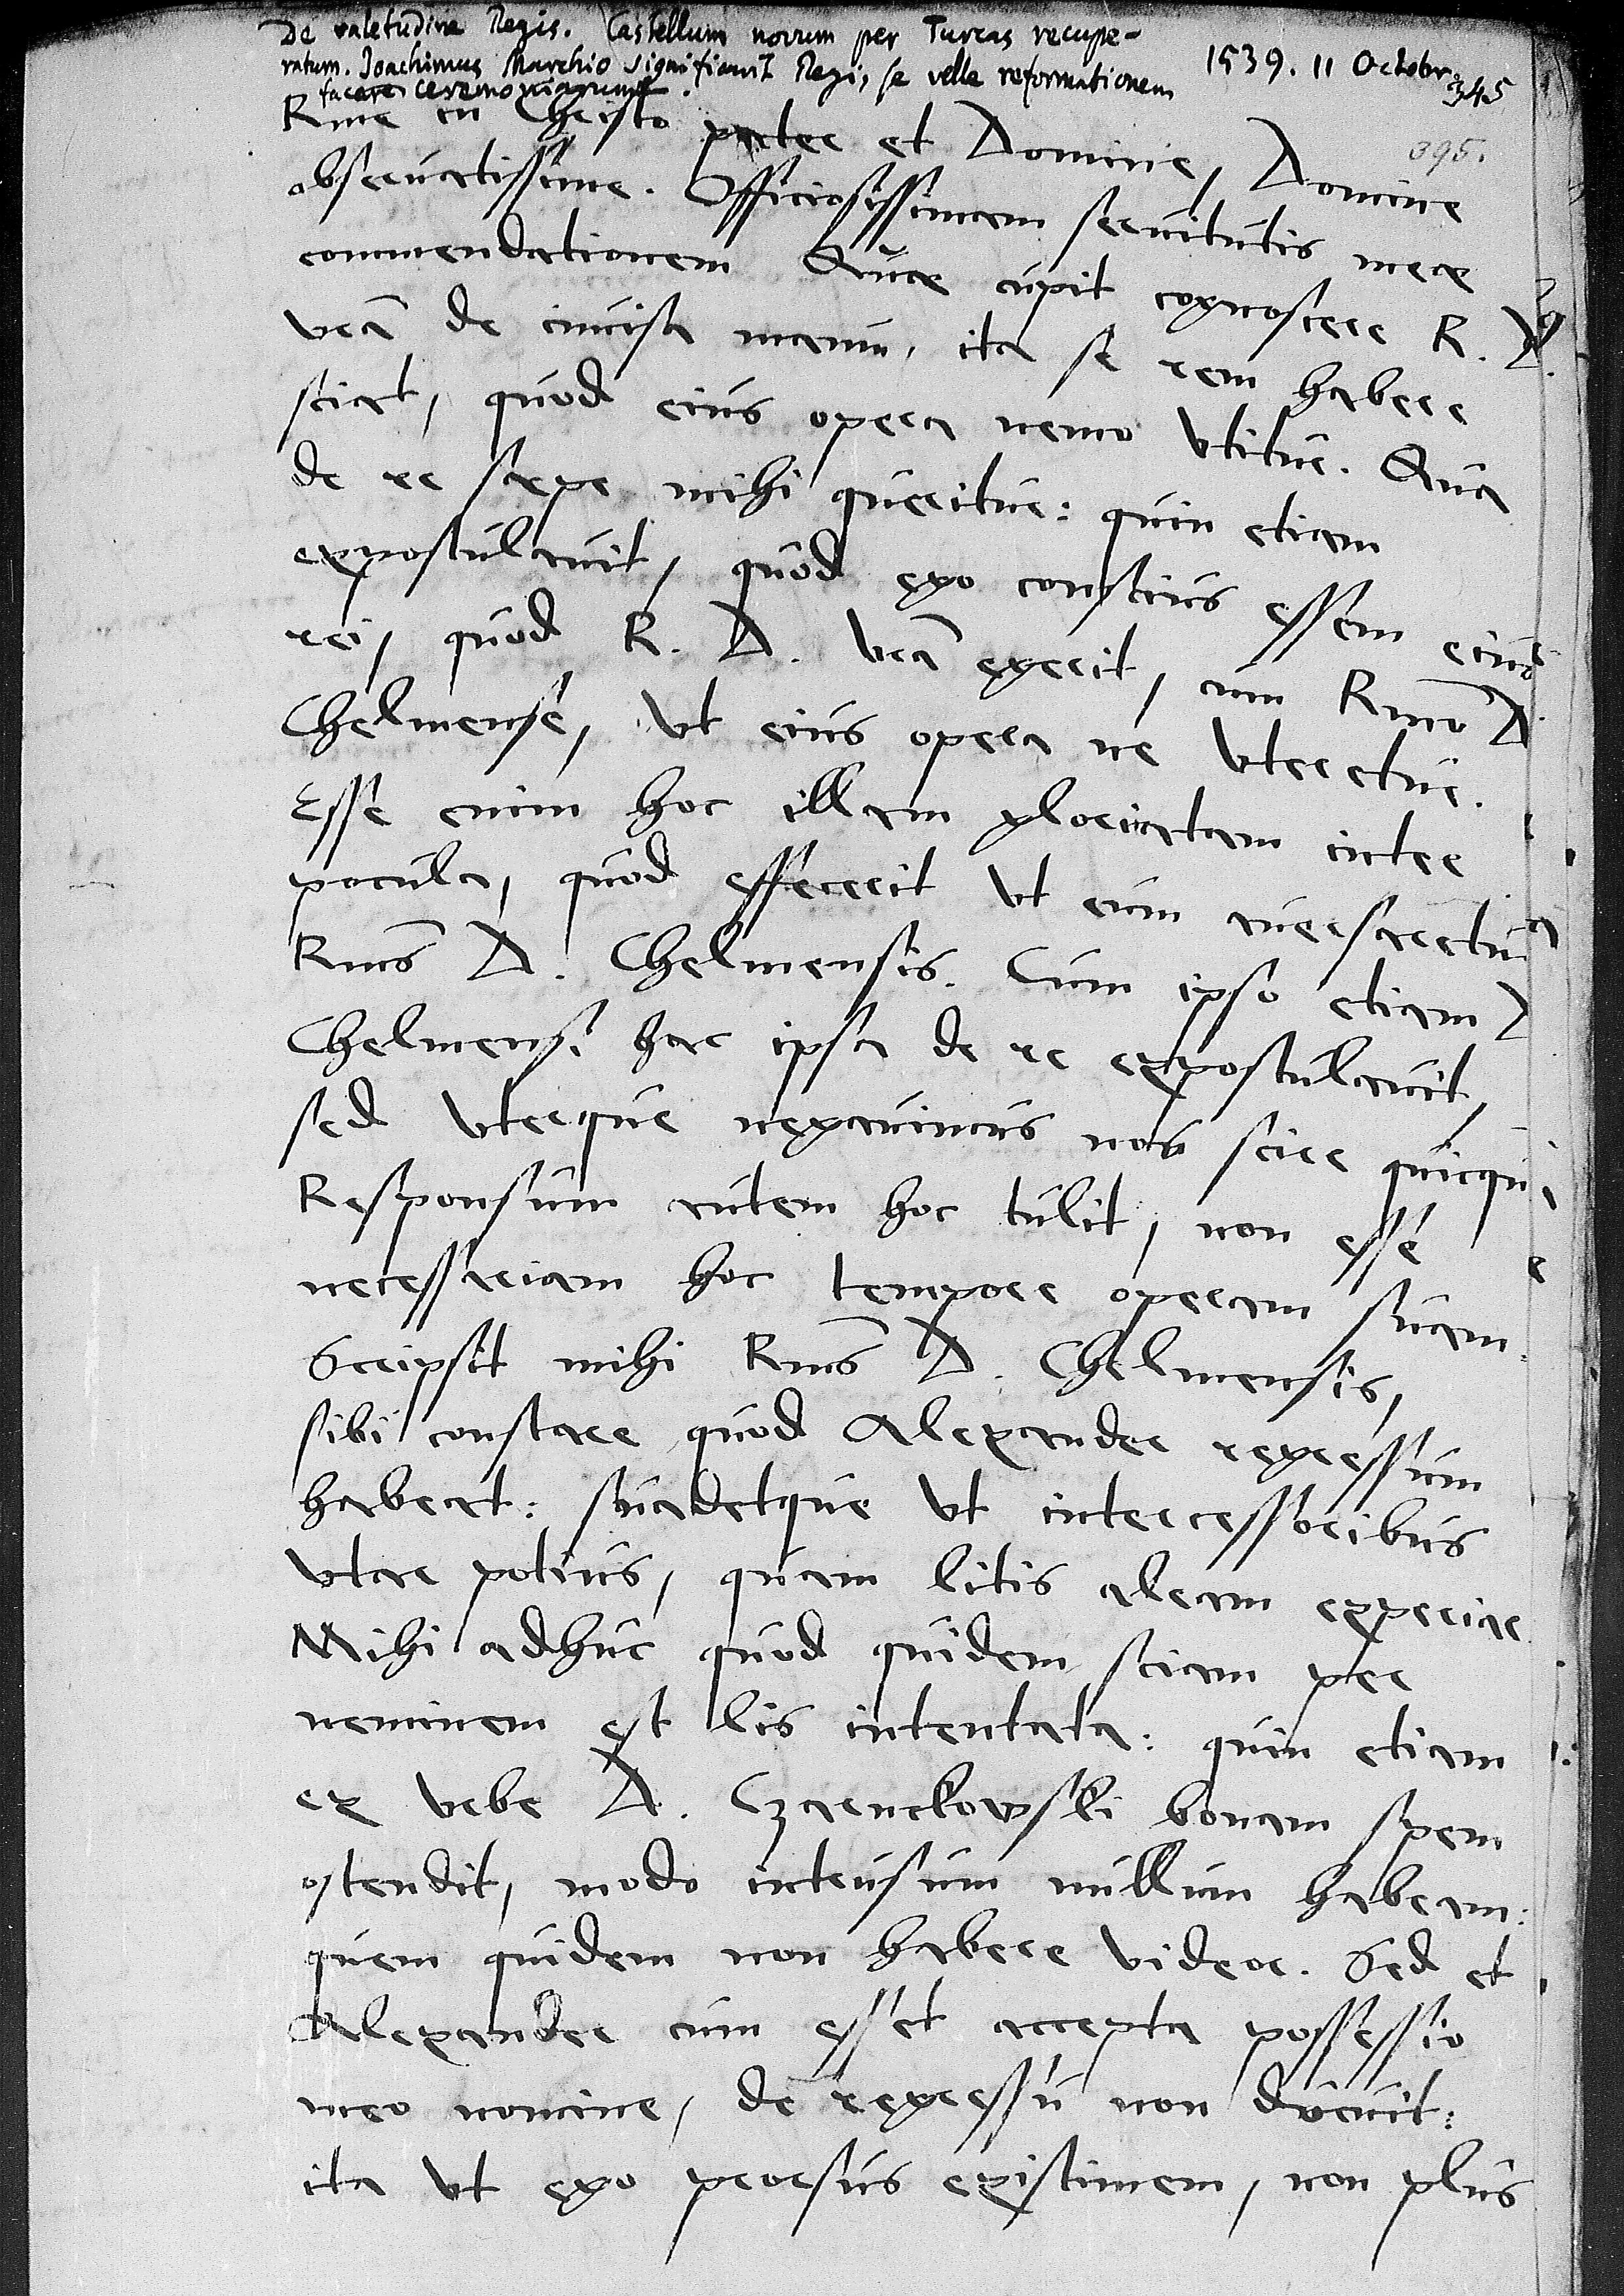 De valetudine Regis. Castellum novum per Turcas recupe-
ratum. Joachimus Marchio significavit Regi, se velle reformationem
facere ceremoniarum.
1539. 11 Octobr.
345
395.
Rme in Christo pater et Domine, Domine
obseruatissime. Officiosissimam seruitutis mee
commendationem Quae cupit cognoscere R. D.
vra de inuisa manu, ita se rem habere
sciat, quod eius opera nemo vtitur. Qua
de re saepe mihi queritur: quin etiam
expostulauit, quod ego conscius essem eius
rei, quod R. D. vra egerit, cum Rmo D.
Chelmense, vt eius opera ne vteretur.
Esse enim hoc illam gloriatam inter
pocula, quod effecerit vt eum auersaretur
Rmus D. Chelmensis. Cum ipso etiam D.
Chelmensi hac ipsa de re expostulauit,
sed vterque negauimus nos scire quicqu
Responsum autem hoc tulit, non esse
necessariam hoc tempore operam suam.
Scripsit mihi Rmus D. Chelmensis,
sibi constare quod Alexander regressum
habeat: suadetque vt intercessoribus
vtar potius, quam litis aleam experiar.
Mihi adhuc quod quidem sciam per
neminem est lis intentata: quin etiam
ex vrbe D. Czarnckowski bonam spem
ostendit, modo intrusum nullum habeam:
quem quidem non habere videor. Sed et
Alexander cum esset accepta possessio
meo nomine, de regressu non docuit:
ita vt ego prorsus existimem, non plus